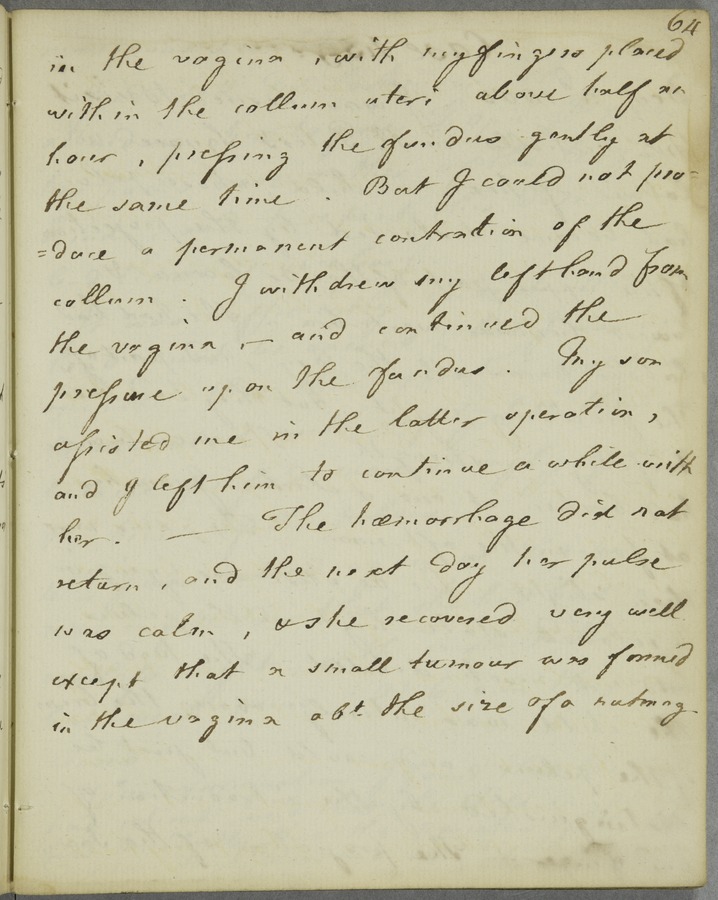 64
in the vagina, with my fingers placed
within the collum uteri above half an
hour, pressing the fundus gently at
the same time. But I could not pro=
=duce a permanent contraction of the
collum. I withdrew my left hand from
the vagina, — and continued the
pressure upon the fundus. My son
assisted me in the latter operation,
and I left him to continue a while with
her. — The hæmorrhage did not
return, and the next day her pulse
was calm, & she recovered very well
except that a small tumour was formed
in the vagina abt. the size of a nutmeg.